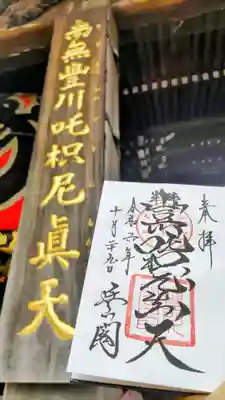 南無豊川吒枳尼眞天
奉拝
豊川吒枳尼眞天
令和六年
十月二十五日
豊川閣